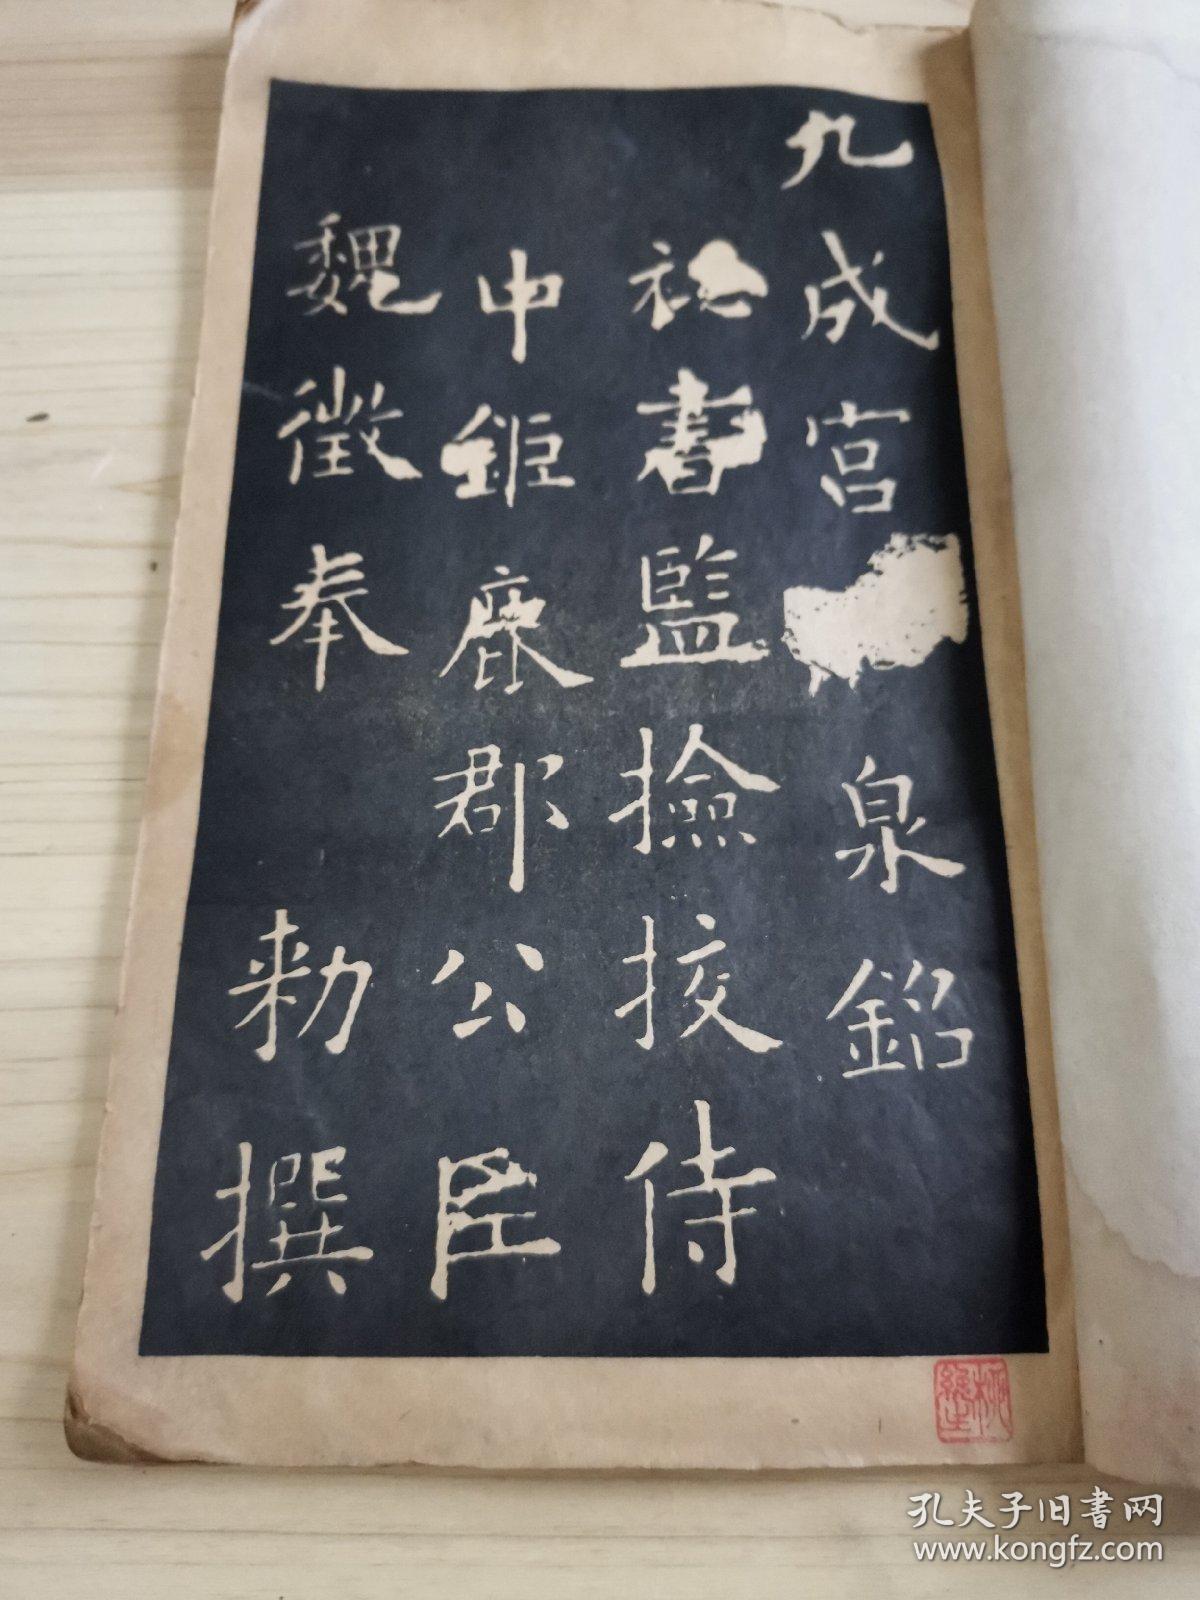 九成宮泉銘
祕書監撿挍侍
中鉅鹿郡公臣
魏徵奉勑撰
孔夫子旧书网
www.kongfz.com